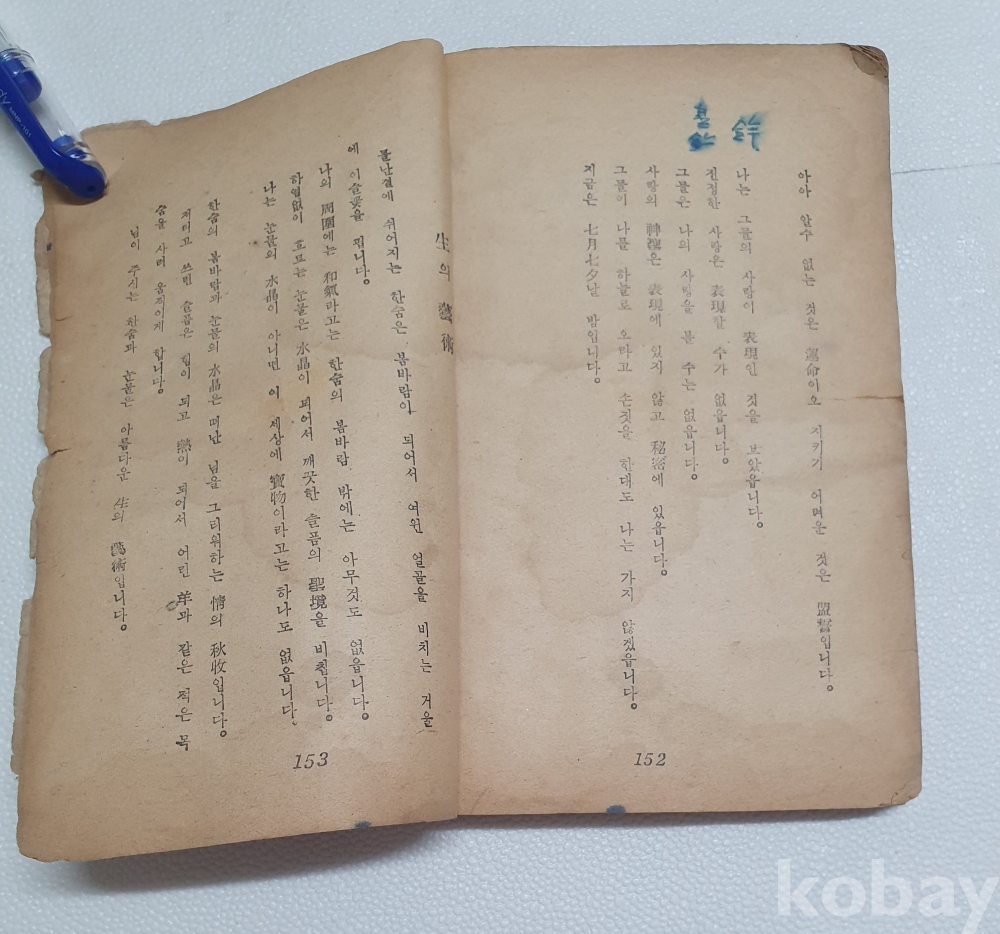 아아 알수 없는 것은 運命이오 지키기 어려운 것은 盟誓입니다。
나는 그들의 사랑이 表現인 것을 보았읍니다。
진정한 사랑은 表現할 수가 없읍니다。
그들은 나의 사랑을 볼 수는 없읍니다。
사랑의 神聖은 表現에 있지 않고 秘密에 있읍니다。
그들이 나를 하늘로 오라고 손짓을 한대도 나는 가지 않겠읍니다。
지금은 七月七夕날 밤입니다。
152
生의 藝術
몰난결에 쉬어지는 한숨은 봄바람이 되어서 여윈 얼굴을 비치는 거울
에 이슬꽃을 핍니다。
나의 周圍에는 和氣라고는 한숨의 봄바람 밖에는 아무것도 없읍니다。
하염없이 흐르는 눈물은 水晶이 되어서 깨끗한 슬픔의 聖境을 비칩니다。
나는 눈물의 水晶이 아니면 이 세상에 寶物이라고는 하나도 없읍니다。
한숨의 봄바람과 눈물의 水晶은 떠난 님을 그리워하는 情의 秋收입니다。
저리고 쓰린 슬픔은 힘이 되고 熱이 되어서 어린 羊과 같은 적은 목
숨을 사러 움직이게 합니다。
님이 주시는 한숨과 눈물은 아름다운 生의 藝術입니다。
153
kobay